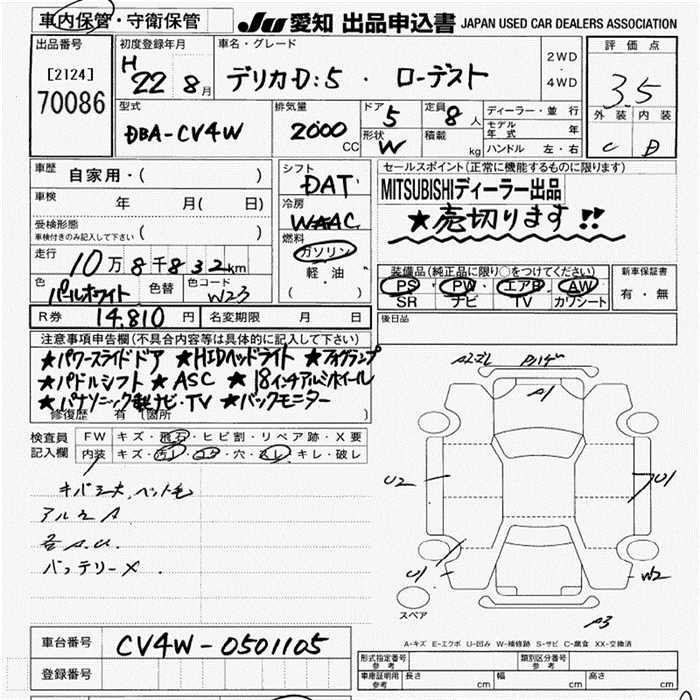 車内保管・守衛保管
JU 愛知 出品申込書 JAPAN USED CAR DEALERS ASSOCIATION
出品番号
[2124]
70086
初度登録年月
H 22 8月
車名・グレード
デリカD:5 ・ ローデスト
2WD
・
4WD
評価点
3.5
外装 内装
C D
型式
DBA-CV4W
排気量
2000 CC
ドア 5
形状 W
定員 8人
積載 kg
ディーラー・並行
モデル年式 年
ハンドル 左・右
車歴
自家用・( )
車検
年 月( 日)
受検形態
車検付きのみ記入して下さい ( )
走行
10万8千832km
色 パールホワイト
色替
色コード W23
シフト
DAT
冷房
WAAC
燃料
ガソリン
軽油
( )
セールスポイント(正常に機能するものに限ります)
MITSUBISHIディーラー出品
★売切ります!!
装備品(純正品に限り○をつけてください)
PS・PW・エアB・AW
SR ナビ TV カワシート
新車保証書
有・無
R券 14,810円
名変期限 月 日
後日品
注意事項申告欄(不具合内容等は具体的に記入して下さい)
★パワースライドドア ★HIDヘッドライト ★フォグランプ
★パドルシフト ★ASC ★18インチアルミホイール
★パナソニック製ナビ・TV ★バックモニター
修復歴 有 [箇所 ]
検査員記入欄
FW キズ・飛石・ヒビ割・リペア跡・X要
内装 キズ・汚レ・コゲ・穴・スレ・キレ・破レ
アルミA
各A.U.
バッテリーX
A1
U2
U1
U1
W2
A3
スペア
A-キズ E-エクボ U-凹み W-補修跡 S-サビ C-腐食 XX-交換済
車台番号 CV4W-0501105
登録番号
形式指定番号 参考
類別区分番号 参考
車庫証明用 参考
長さ cm
幅 cm
高さ cm